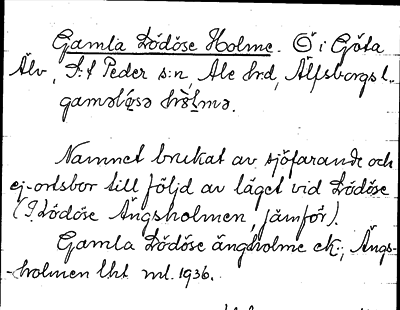 Gamla Lödöse Holme. Ö i Göta
Älv, S:t Peder s:n, Ale hrd, Älfsborgs l.
Namnet brukat av sjöfarande och
ej ortsbor till följd av läget vid Lödöse
(Lödöse Ängsholmen, jämför).
Gamla Lödöse ängholme ek.; Ängs-
-holmen lht ml. 1936.